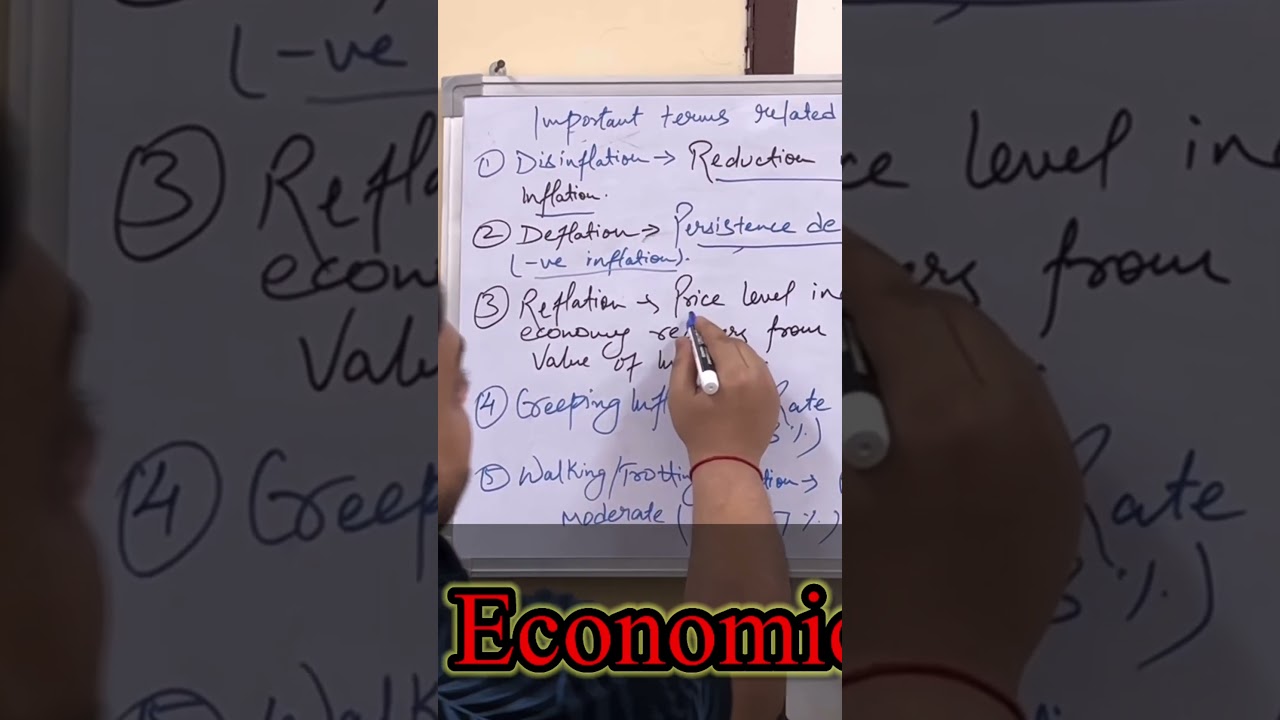 Important terms related
① Disinflation → Reduction
Inflation.
② Deflation → Persistence de
(-ve inflation).
③ Reflation → Price level in
economy from
Value of
④ Creeping Infl Rate
%)
⑤ Walking/Trotting tion →
moderate ( 7 %)
Economic
(-ve
③ Refla
econ
Valu
④ Creep
level in
from
Rate
%)